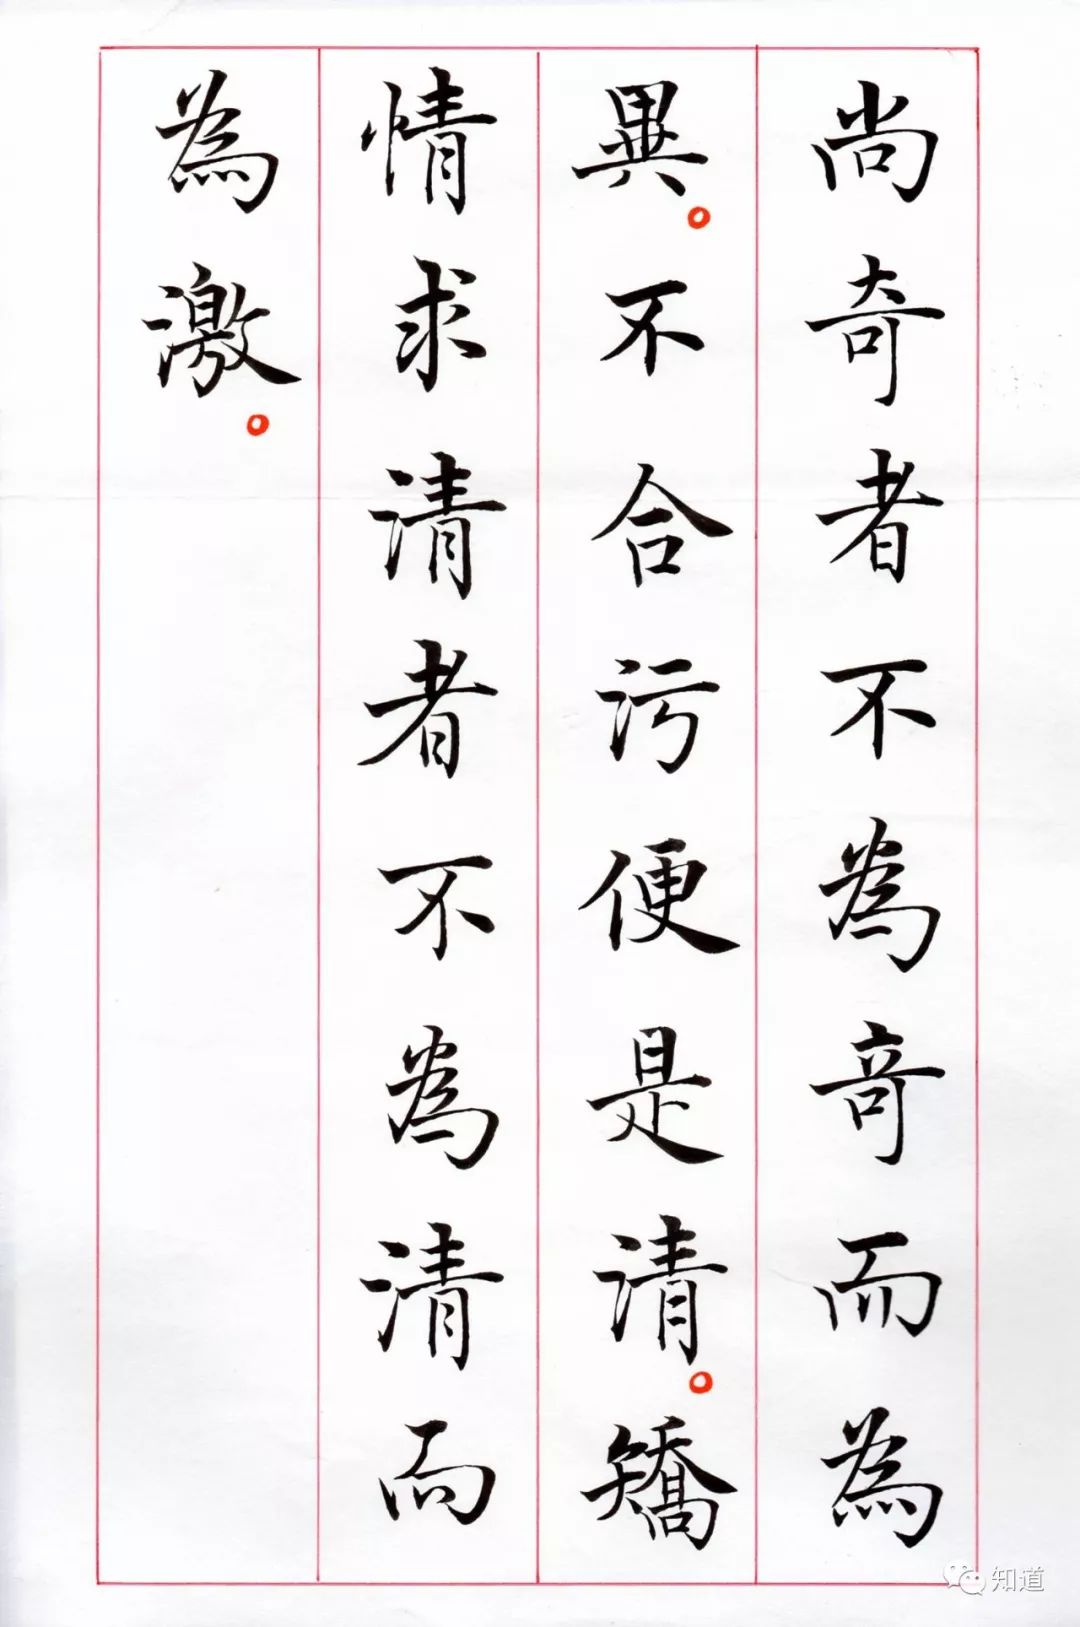 尚奇者不為奇而為
異。不合污便是清。矯
情求清者不為清而
為激。
知道